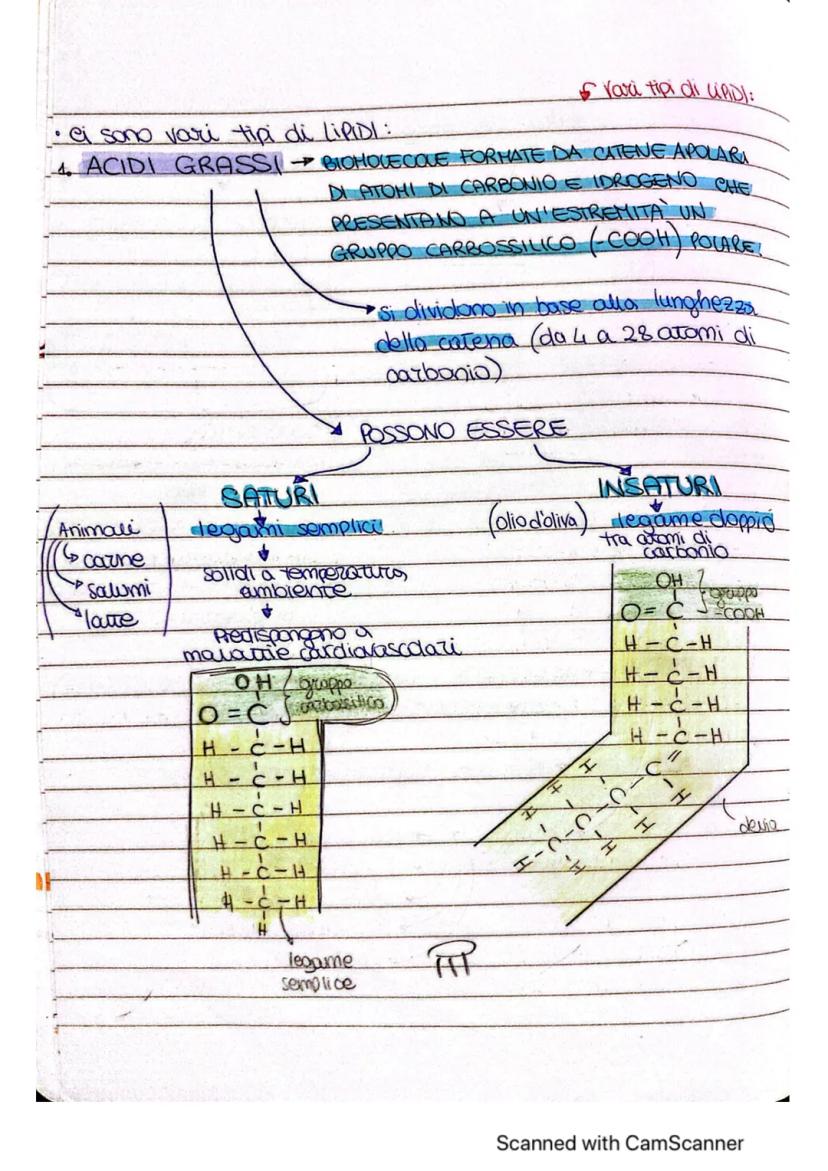 Vari tipi di LIPIDI:
• ci sono vari tipi di LIPIDI:
1. ACIDI GRASSI → BIOMOLECOLE FORMATE DA CATENE APOLARI
DI ATOMI DI CARBONIO E IDROGENO CHE
PRESENTANO A UN'ESTREMITÀ UN
GRUPPO CARBOSSILICO (-COOH) POLARE.
si dividono in base alla lunghezza
della catena (da 4 a 28 atomi di
carbonio)
POSSONO ESSERE
SATURI
INSATURI
(Animali
carne
salumi
latte)
legami semplici
solidi a temperatura
ambiente
Predispongono a
malattie cardiovascolari
(olio d'oliva)
legame doppio
tra atomi di
carbonio
OH
O=C
gruppo
carbossilico
H-C-H
H-C-H
H-C-H
H-C-H
H-C-H
H-C-H
H
legame
semplice
OH
O=C
gruppo
-COOH
H-C-H
H-C-H
H-C-H
H-C-H
C
H
H
C
H
H
C
H
H
H-C
H
devia
III
Scanned with CamScanner